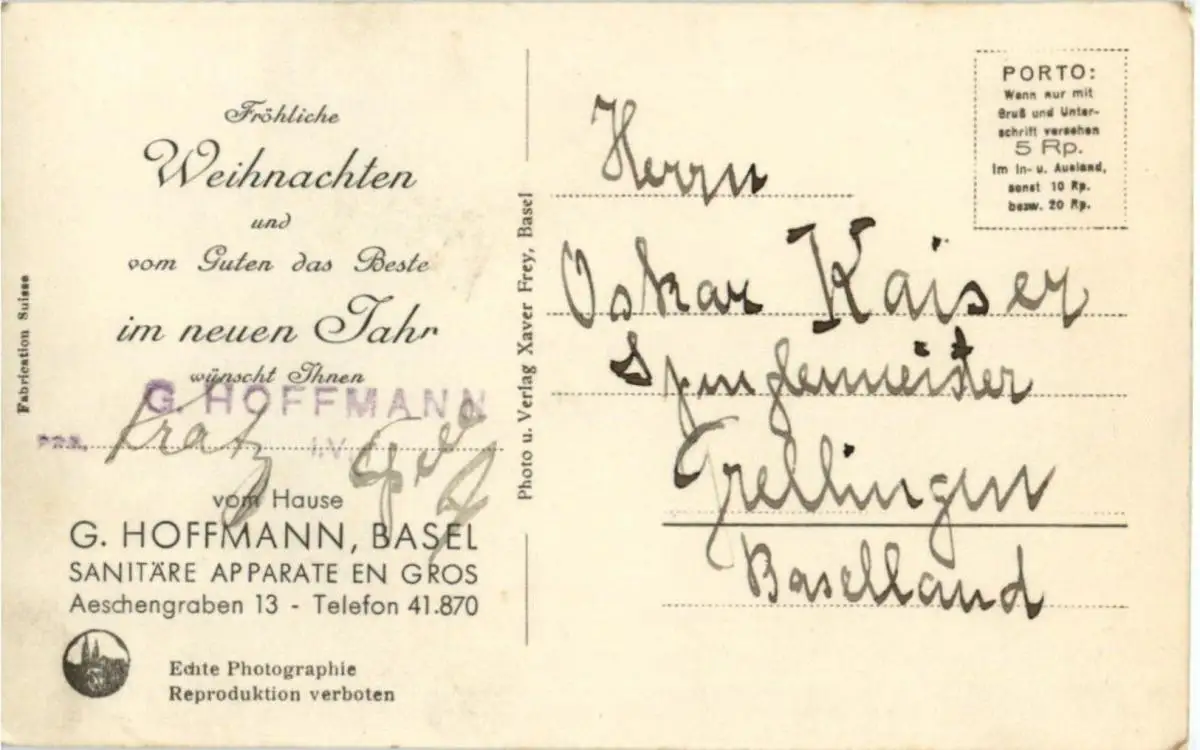 Fröhliche
Weihnachten
und
vom Guten das Beste
im neuen Jahr
wünscht Ihnen
G. HOFFMANN
PPA.
I.V.
vom Hause
G. HOFFMANN, BASEL
SANITÄRE APPARATE EN GROS
Aeschengraben 13 - Telefon 41.870
Echte Photographie
Reproduktion verboten
Fabrication Suisse
Photo u. Verlag Xaver Frey, Basel
PORTO:
Wenn nur mit
Gruß und Unter-
schrift versehen
5 Rp.
Im In- u. Ausland,
sonst 10 Rp.
bezw. 20 Rp.
Herrn
Oskar Kaiser
Spenglermeister
Grellingen
Baselland